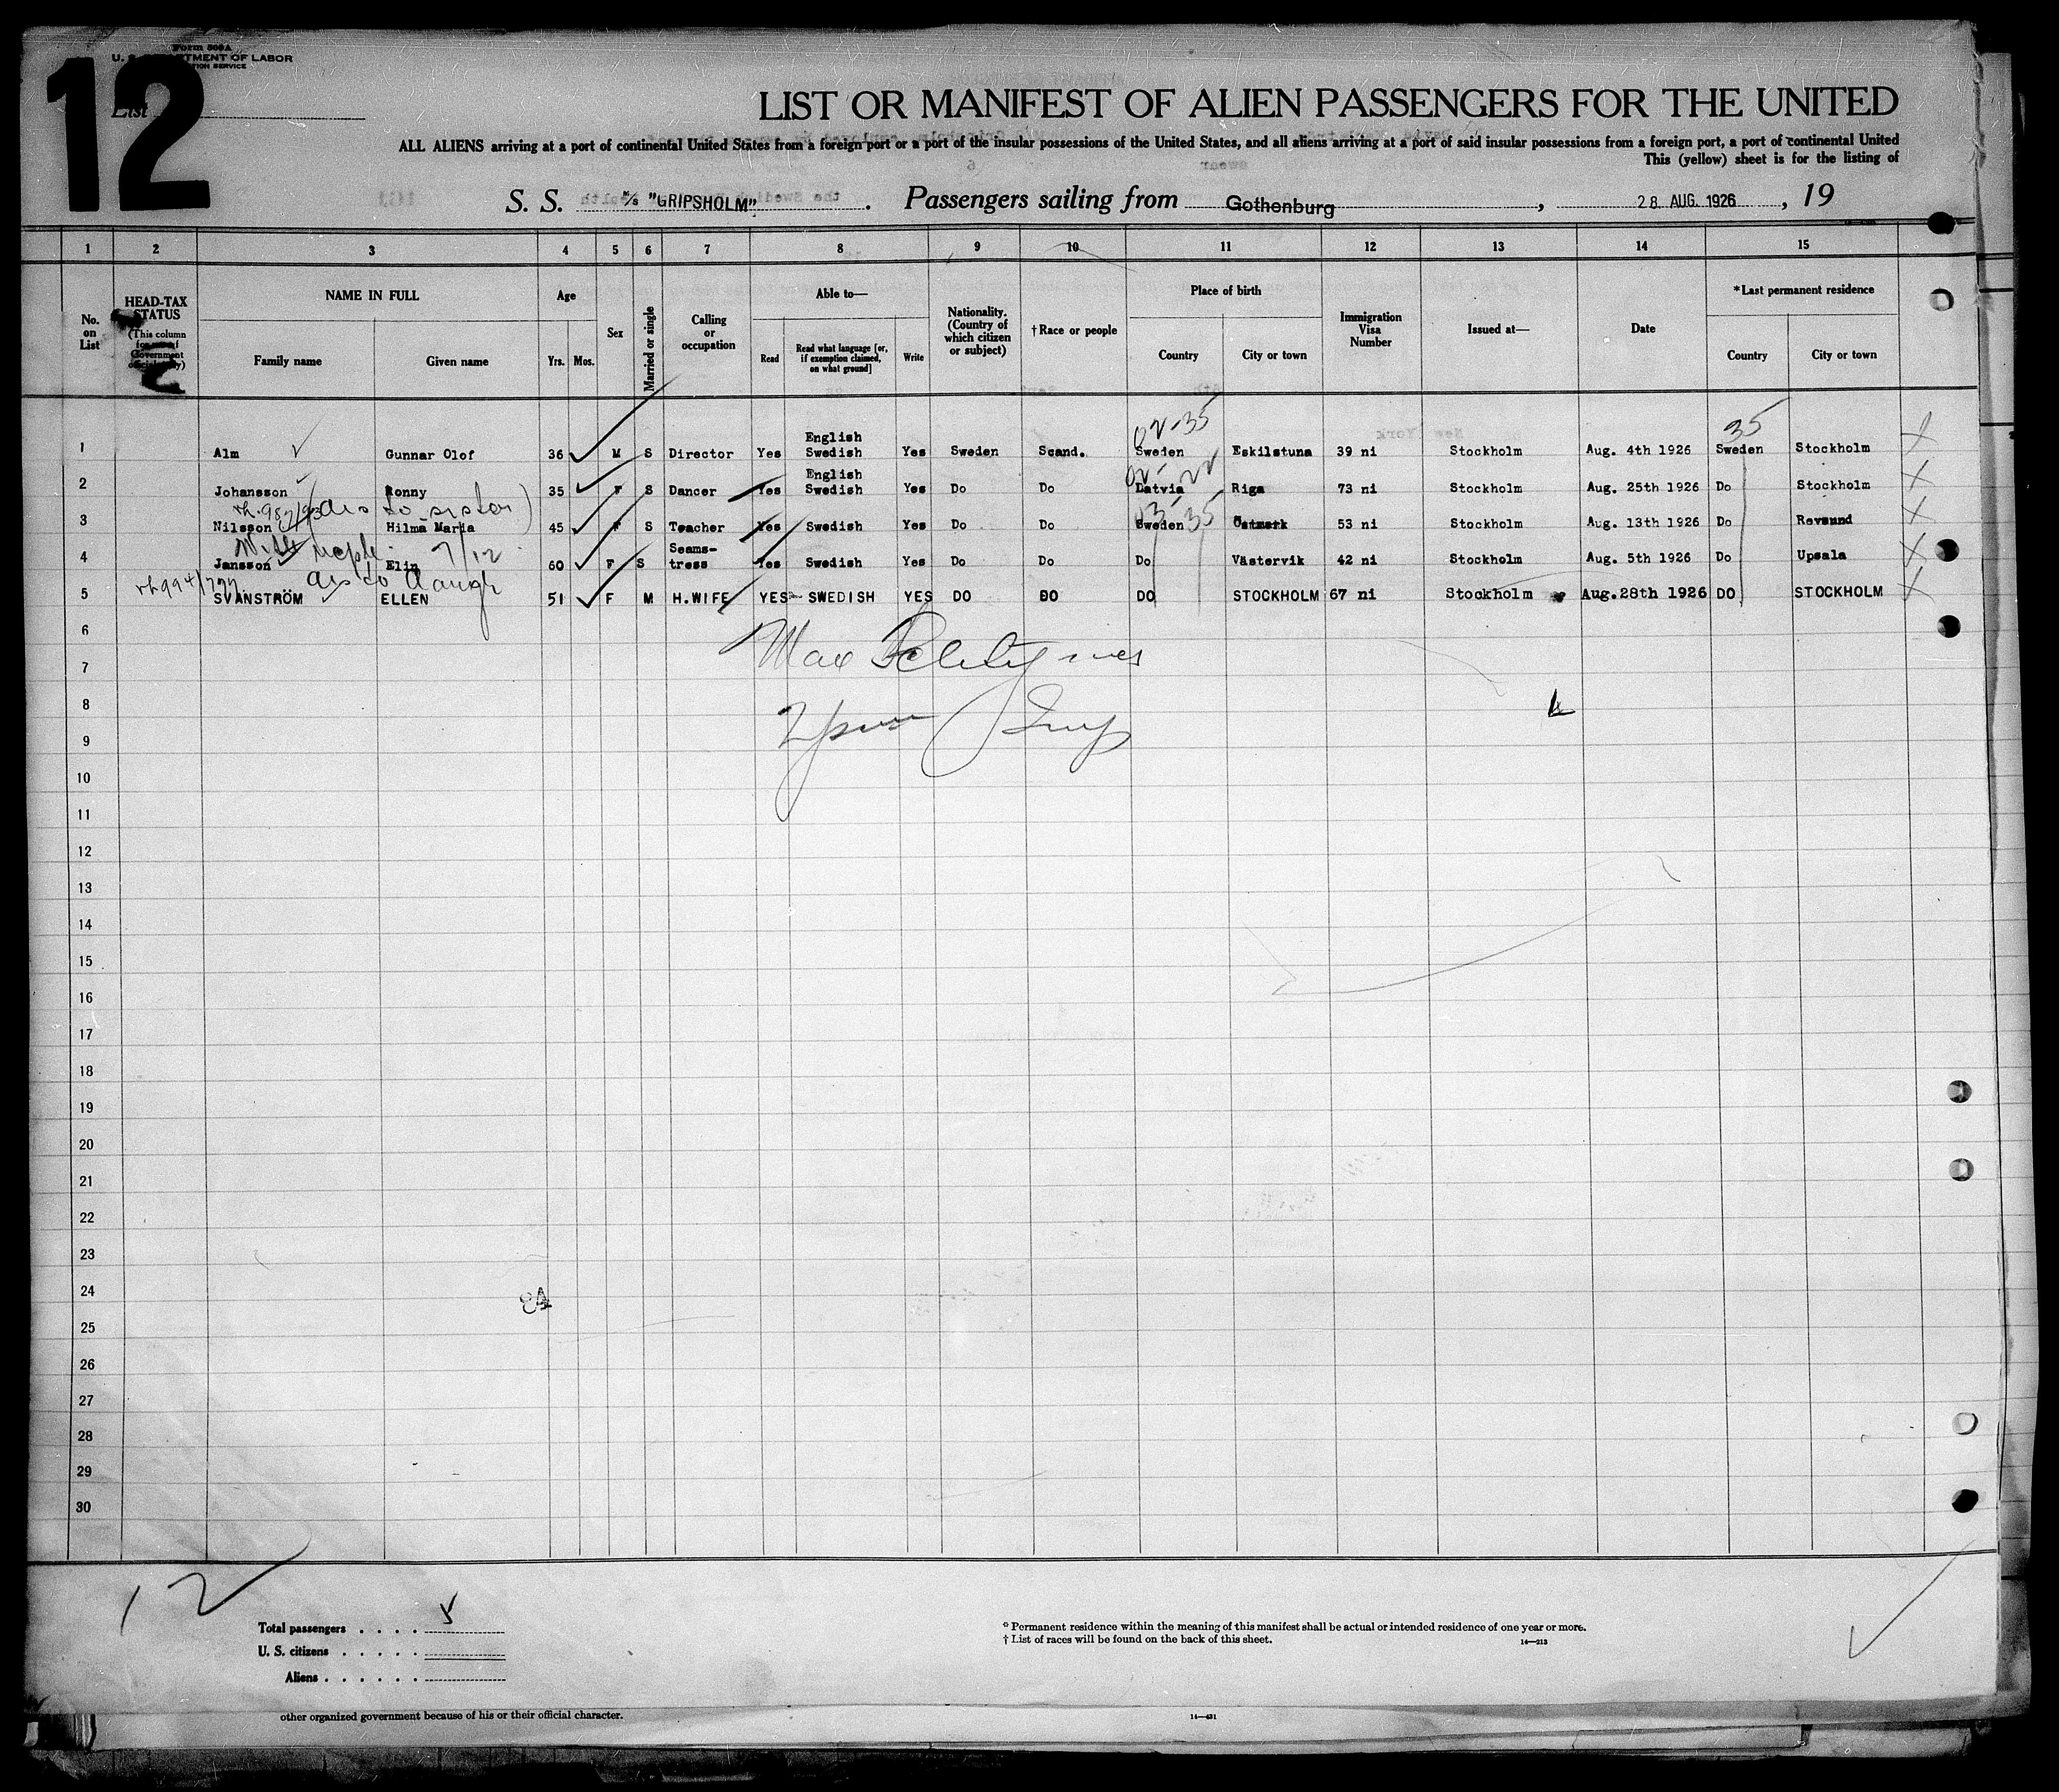 Form 500A
U. S. DEPARTMENT OF LABOR
12
List
LIST OR MANIFEST OF ALIEN PASSENGERS FOR THE UNITED
ALL ALIENS arriving at a port of continental United States from a foreign port or a port of the insular possessions of the United States, and all aliens arriving at a port of said insular possessions from a foreign port, a port of continental United
This (yellow) sheet is for the listing of
S. S. M/S "GRIPSHOLM". Passengers sailing from Gothenburg, 28. AUG. 1926, 19
1 2 3 4 5 6 7 8 9 10 11 12 13 14 15
No. on List HEAD-TAX STATUS (This column Government NAME IN FULL Family name Given name Age Yrs. Mos. Sex Married or single Calling or occupation Able to— Read Read what language [or, if exemption claimed, on what ground] Write Nationality. (Country of which citizen or subject) †Race or people Place of birth Country City or town Immigration Visa Number Issued at— Date *Last permanent residence Country City or town
02-35 35
1 Alm Gunnar Olof 36 M S Director Yes English Swedish Yes Sweden Scand. Sweden Eskilstuna 39 ni Stockholm Aug. 4th 1926 Sweden Stockholm
2 Johansson Ronny 35 F S Dancer Yes English Swedish Yes Do Do Latvia Riga 73 ni Stockholm Aug. 25th 1926 Do Stockholm
des to sister)
3 Nilsson Hilma Maria 45 F S Teacher Yes Swedish Yes Do Do Sweden Östmark 53 ni Stockholm Aug. 13th 1926 Do Revsund
7/12
4 Jansson Elin 60 F S Seams-tress Yes Swedish Yes Do Do Do Västervik 42 ni Stockholm Aug. 5th 1926 Do Upsala
des to daugh
5 SVANSTRÖM ELLEN 51 F M H.WIFE YES SWEDISH YES DO DO DO STOCKHOLM 67 ni Stockholm Aug.28th 1926 DO STOCKHOLM
6
Max
7
8
9
Insp
10
11
12
13
14
15
16
17
18
19
20
21
22
23
24
25
26
27
28
29
30
12
Total passengers . . . . 5
U. S. citizens . . . . .
Aliens . . . . . .
* Permanent residence within the meaning of this manifest shall be actual or intended residence of one year or more.
† List of races will be found on the back of this sheet. 14—213
other organized government because of his or their official character. 14—431